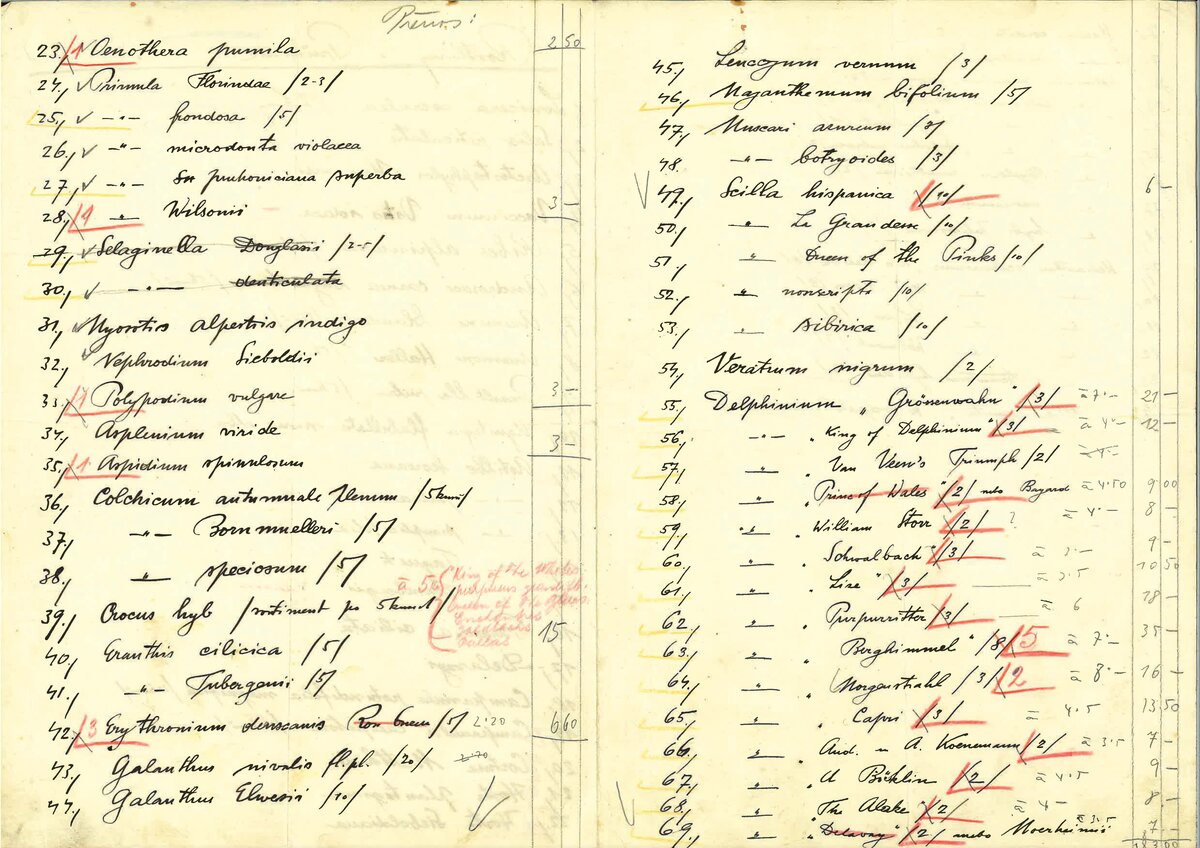 Přenos:
250
23., 1 Oenothera pumila
24., Primula Florindae /2-3/
25., -"- frondosa /5/
26., -"- microdonta violacea
27., -"- pruhoniciana superba
28., 1 " Wilsonii 3-
29., Selaginella Douglasii /2-5/
30., -"- denticulata
31., Myosotis alpestris indigo
32., Nephrodium Sieboldii
33., 1 Polypodium vulgare 3-
34., Asplenium viride
35., 1 Aspidium spinulosum 3-
36., Colchicum autumnale plenum /5kusů/
37., -"- Bornmuelleri /5/
38., -"- speciosum /5/
39., Crocus hyb /sortiment po 5kusech/ à 5 15
King of the Whites
purpureus grandifl.
40., Eranthis cilicica /5/
41., -"- Tubergenii /5/
42., 3 Erythronium denscanis /5/ 2.20 660
43., Galanthus nivalis fl.pl. /20/
44., Galanthus Elwesii /10/
45., Leucojum vernum /3/
46., Majanthemum bifolium /5/
47., Muscari azureum /3/
48. -"- botryoides /3/
49., Scilla hispanica /10/ 6-
50., -"- La Grandesse /10/
51., " Queen of the Pinks /10/
52., " nonscripta /10/
53., " sibirica /10/
54, Veratrum nigrum /2/
55., Delphinium "Grössenwahn" /3/ à 7.- 21-
56., -"- "King of Delphinium" /3/ à 4.- 12-
57., " " Van Veen's Triumph /2/
58., " " Prince of Wales" /2/ nebo Bayard à 4.50 9.00
59., " " William Storr /2/ ? à 4.- 8-
60., " " Schwalbach" /3/ à 3.- 9-
61., " " Lize " /3/ à 3.5 1050
62., " " Purpurritter /3/ à 6 18-
63., " " Berghimmel" /8/ 5 à 7.- 35-
64., " " Morgenstrahl /3/ 2 à 8.- 16-
65., " " Capri /3/ à 4.5 13.50
66., " " And. u A. Koenemann /2/ à 3.5 7-
67., " " A Böcklin /2/ à 4.5 9-
68., " " The Alake /2/ à 4- 8-
69., " " Delavay" /2/ nebo Moerheimii à 3.5 7-